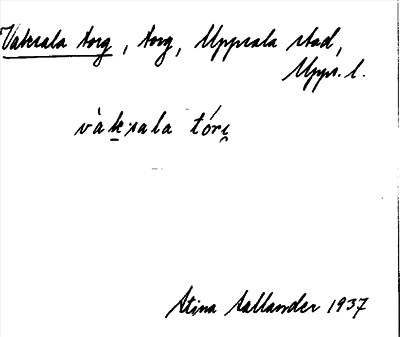 Vaksala torg, torg, Uppsala stad,
Upps. l.
vàk̲sala tóri̯
Stina Sallander 1937